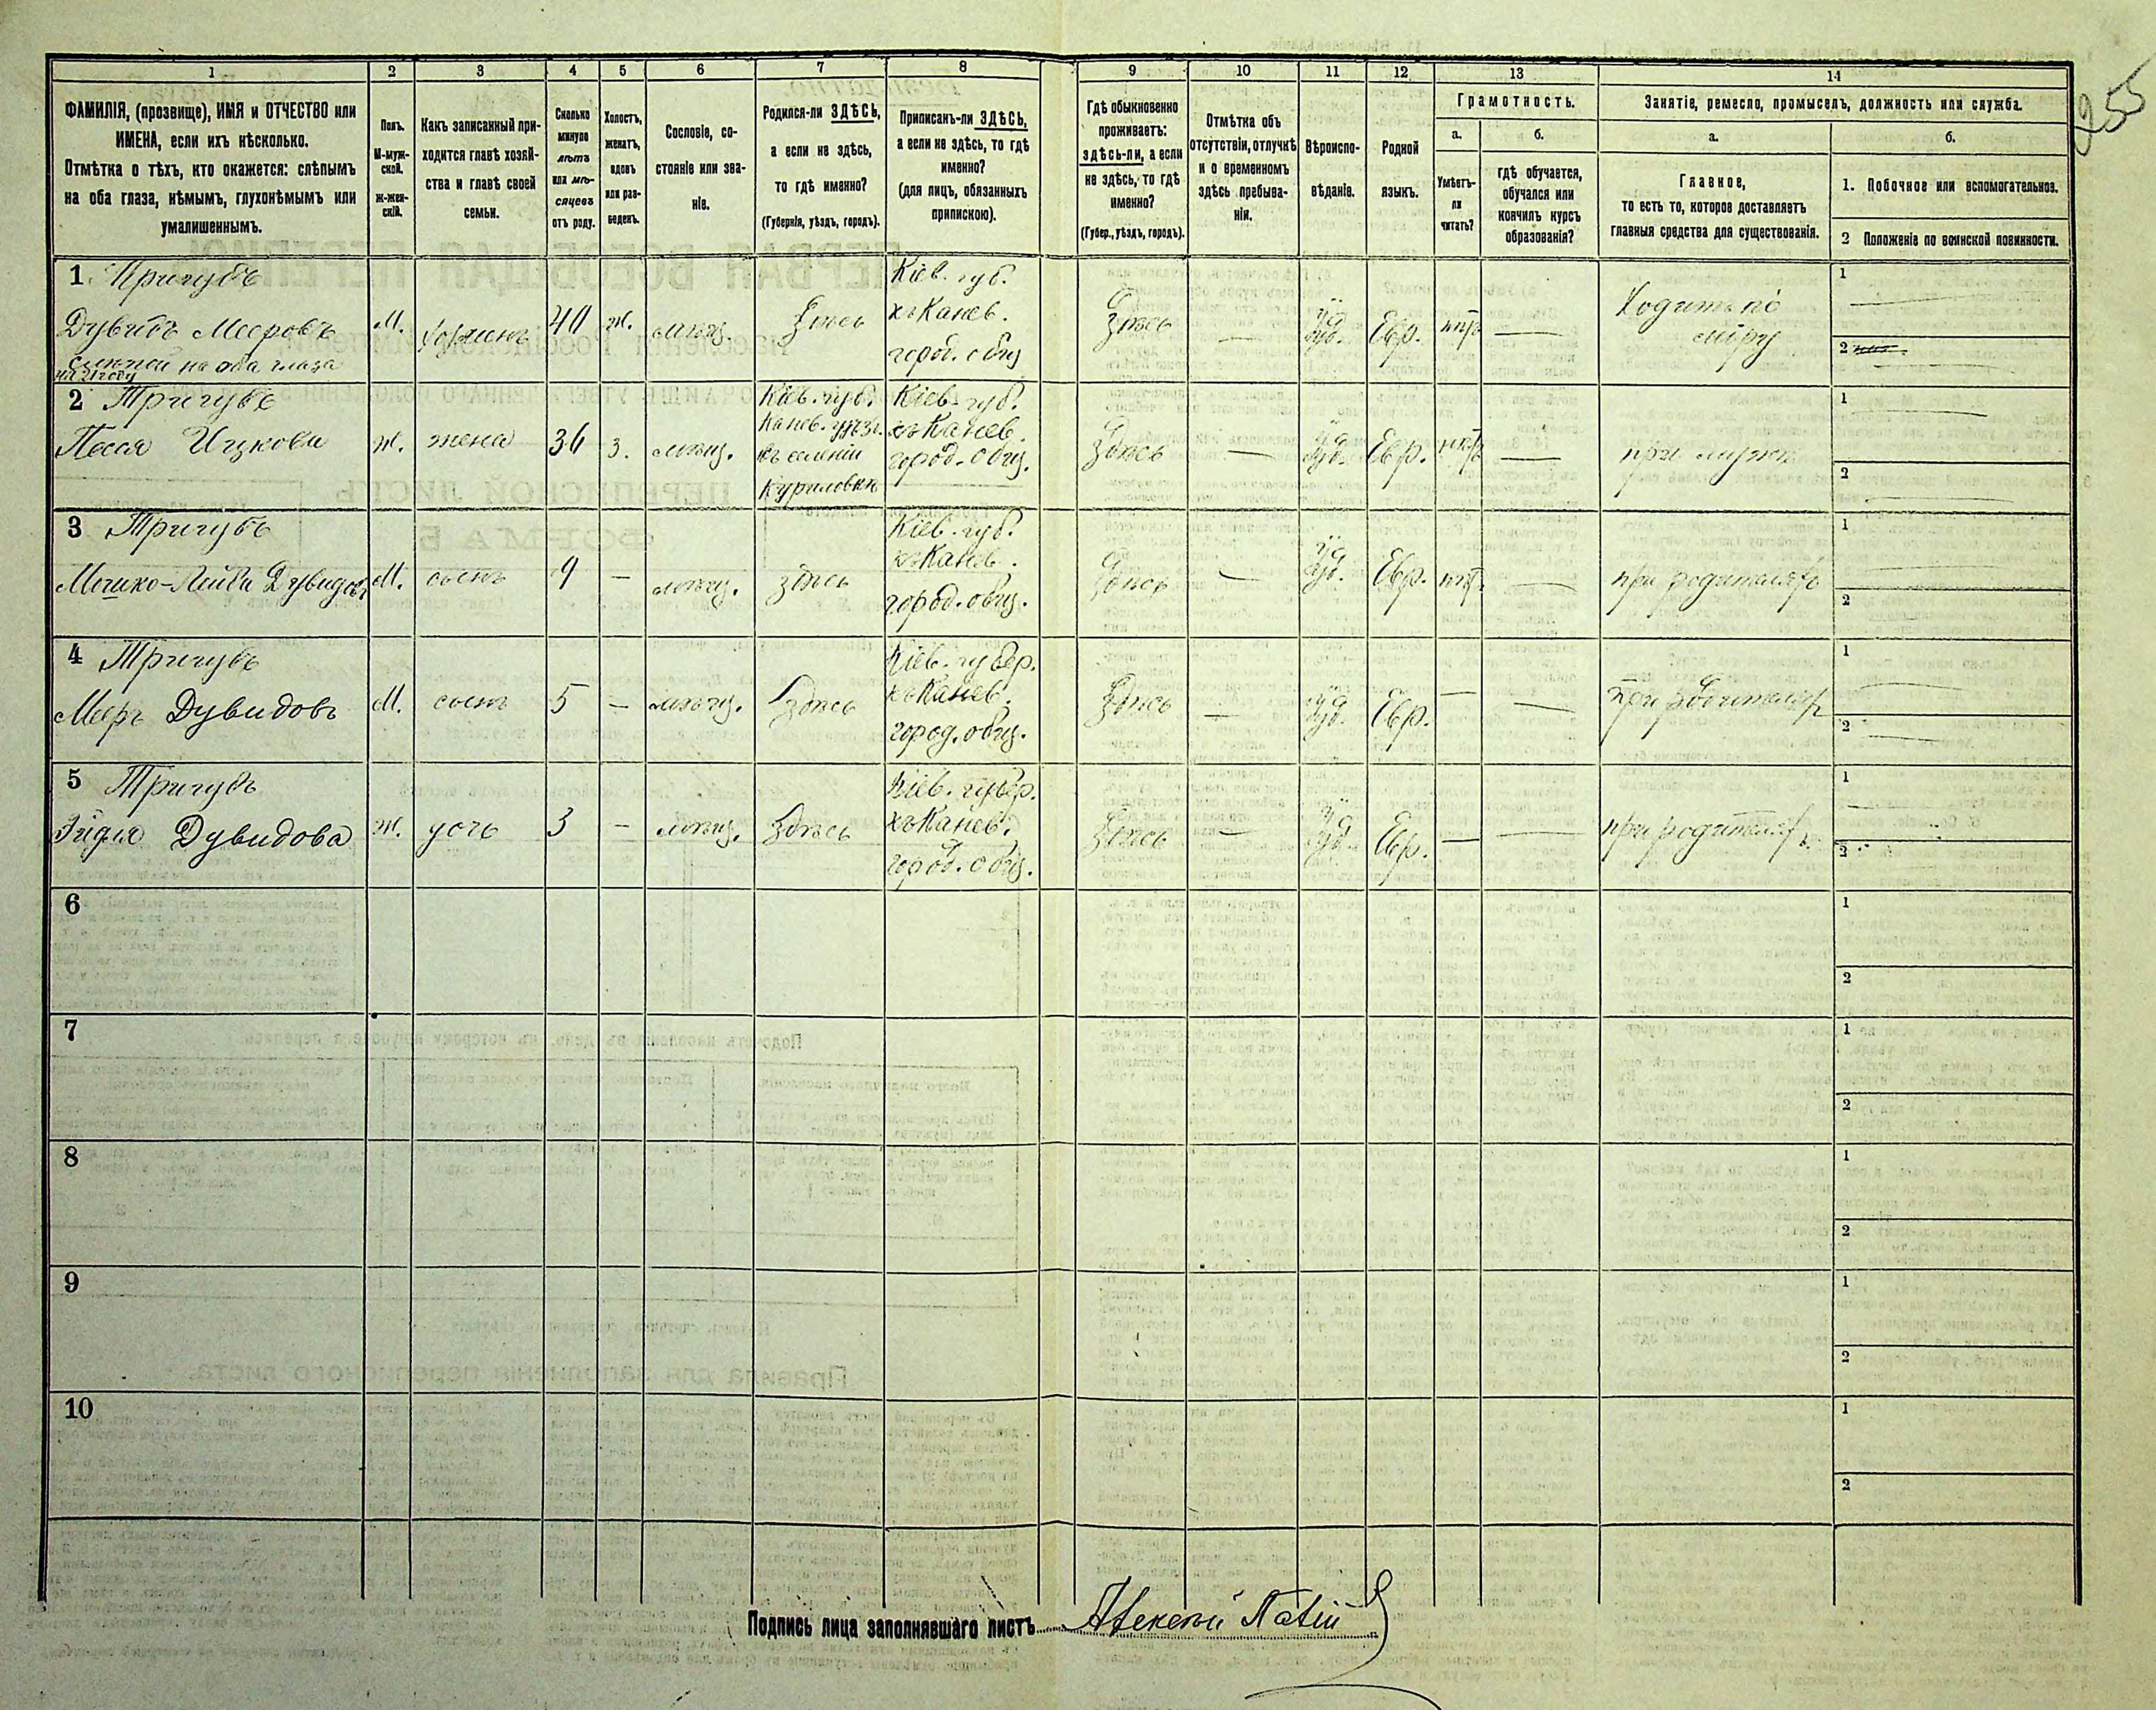 255
1 2 3 4 5 6 7 8 9 10 11 12 13 14
ФАМИЛІЯ, (прозвище), ИМЯ и ОТЧЕСТВО или
ИМЕНА, если ихъ нѣсколько.
Отмѣтка о тѣхъ, кто окажется: слѣпымъ
на оба глаза, нѣмымъ, глухонѣмымъ или
умалишеннымъ.
Полъ.
М-муж-
ской.
ж-жен-
скій.
Какъ записанный при-
ходится главѣ хозяй-
ства и главѣ своей
семьи.
Сколько
минуло
лѣтъ
или мѣ-
сяцевъ
отъ роду.
Холостъ,
женатъ,
вдовъ
или раз-
веденъ.
Сословіе, со-
стояніе или зва-
ніе.
Родился-ли ЗДѢСЬ,
а если не здѣсь,
то гдѣ именно?
(Губернія, уѣздъ, городъ).
Приписанъ-ли ЗДѢСЬ,
а если не здѣсь, то гдѣ
именно?
(для лицъ, обязанныхъ
припискою).
Гдѣ обыкновенно
проживаетъ:
здѣсь-ли, а если
не здѣсь, то гдѣ
именно?
(Губер., уѣздъ, городъ).
Отмѣтка объ
отсутствіи, отлучкѣ
и о временномъ
здѣсь пребыва-
ніи.
Вѣроиспо-
вѣданіе.
Родной
языкъ.
Грамотность.
а.
Умѣетъ-
ли
читать?
б.
гдѣ обучается,
обучался или
кончилъ курсъ
образованія?
Занятіе, ремесло, промыселъ, должность или служба.
а.
Главное,
то есть то, которое доставляетъ
главныя средства для существованія.
б.
1. Побочное или вспомогательное.
2 Положеніе по воинской повинности.
1 Тригубъ
Дувидъ Мееровъ
слѣпой на оба глаза
на 21 году
М.
хозяинъ
40
ж.
мѣщ.
Здѣсь
Кіев. губ.
къ Канев.
город. общ
Здѣсь
—
Іуд.
Евр.
нѣтъ
—
Ходитъ по
міру
1
2
2 Тригубъ
Песся Ицкова
Ж.
жена
36
З.
мѣщ.
Кіев. губ.
Канев. уѣзд.
въ селеніи
Куриловкѣ
Кіев. губ.
къ Канев.
город. общ.
Здѣсь
—
Іуд.
Евр.
нѣтъ
—
при мужѣ
1
2
3 Тригубъ
Мошко-Лейба Дувидовъ
М.
сынъ
9
—
мѣщ.
здѣсь
Кіев. губ.
къ Канев.
город. общ.
Здѣсь
—
Іуд.
Евр.
нѣтъ
—
при родителяхъ
1
2
4 Тригубъ
Мееръ Дувидовъ
М.
сынъ
5
—
мѣщ.
Здѣсь
Кіев. губер.
къ Канев.
город. общ.
Здѣсь
—
Іуд.
Евр.
—
—
при родителях
1
2
5 Тригубъ
Эйдля Дувидова
Ж.
дочь
3
—
мѣщ.
Здѣсь
Кіев. губер.
къ Канев.
город. общ.
Здѣсь
—
Іуд.
Евр.
—
—
при родителяхъ
1
2
6
1
2
7
1
2
8
1
2
9
1
2
10
1
2
Подпись лица заполнявшаго листъ Алексѣй